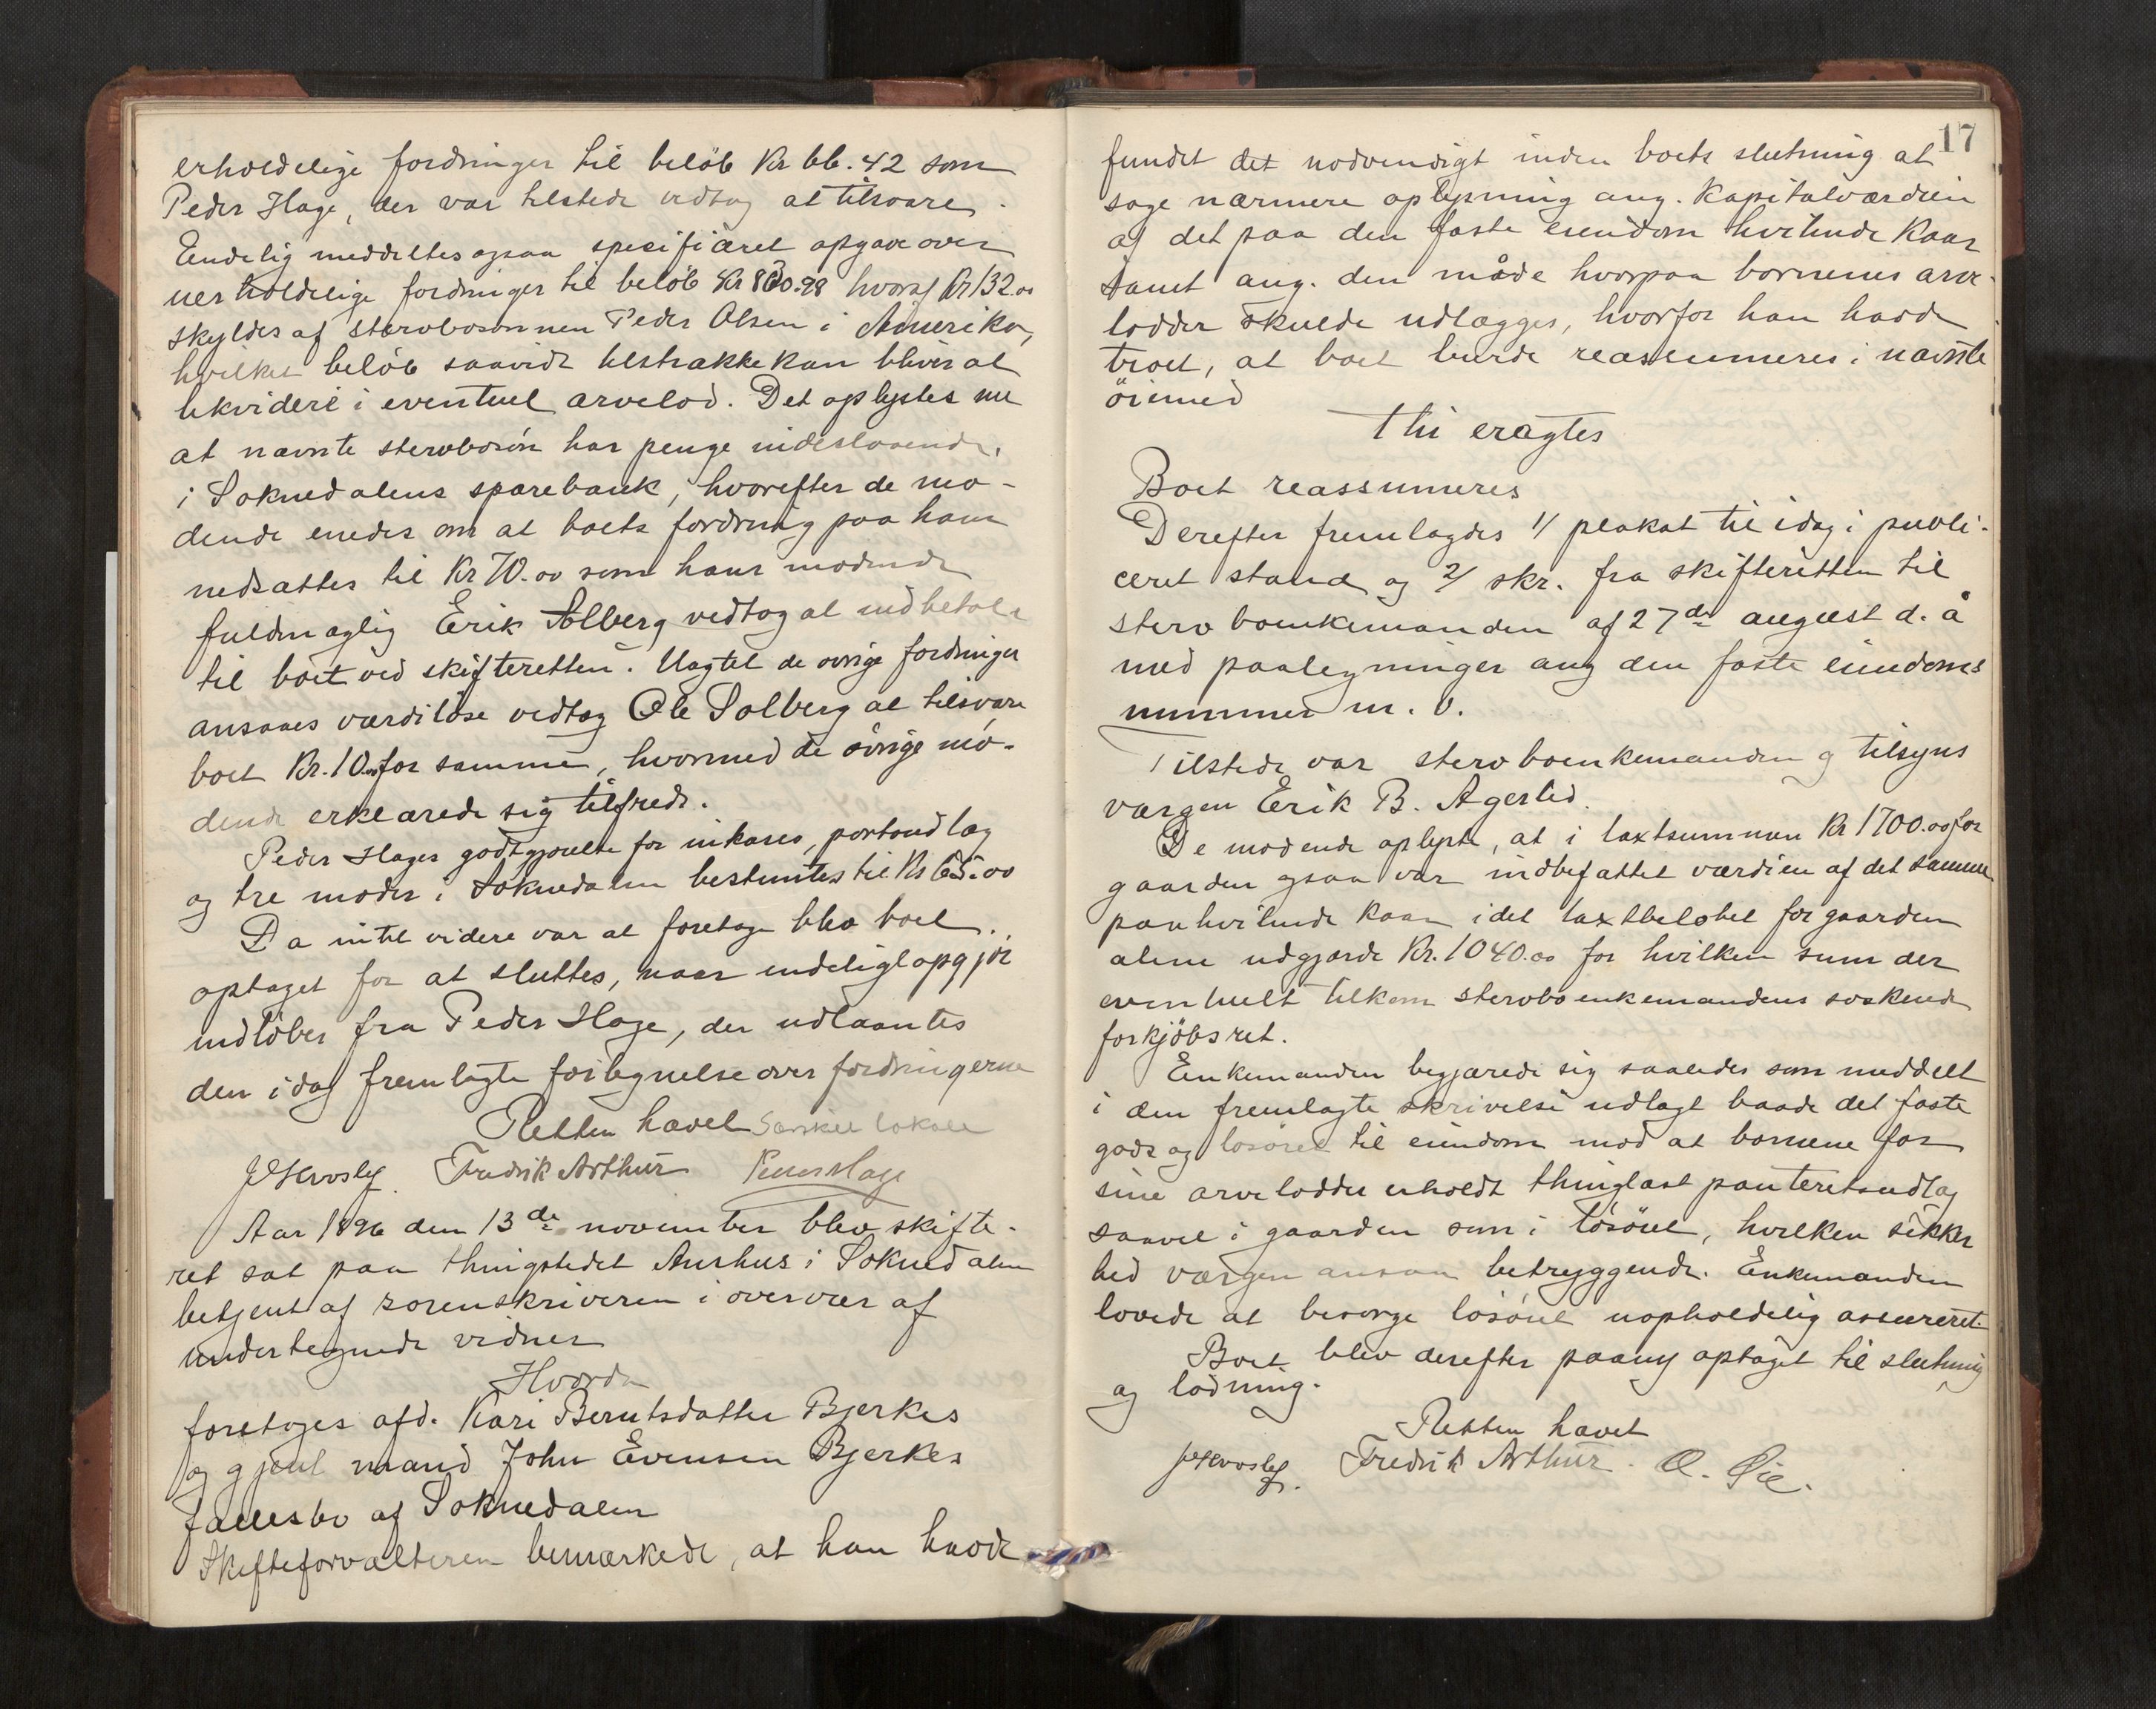 erholdelige fordringer til beløb Kr 66.42 som
Peder Hage, der var tilstede vedtog at tilsvare.
Endelig meddeltes ogsaa specifiæret opgave over
uerholdelige fordringer til beløb Kr 860.98 hvoraf Kr 132.00
skyldes af stervbosønnen Peder Olsen i Amerika,
hvilket beløb saavidt tilstrække kan bliver at
likvidere i eventuel arvelod. Det oplystes nu
at nævnte stervbosøn har penge indestaaende
i Soknedalens sparebank, hvorefter de mø-
dende enedes om at boets fordring paa ham
nedsattes til Kr 70.00 som hans mødende
fuldmægtig Erik Solberg vedtog at indbetale
til boet ved skifteretten. Uagtet de øvrige fordringer
ansaaes værdiløse vedtog Ole Solberg at tilsvare
boet Kr. 10.00 for samme, hvormed de øvrige mø-
dende erklærede sig tilfreds.
Peder Hages godtgjørelse for inkasso, portoudlæg
og tre møder i Soknedalen bestemtes til Kr 65.00
Da intet videre var at foretage blev boet
optaget for at sluttes, naar endeligt opgjør
indløber fra Peder Hage, der udlaantes
den idag fremlagte fortegnelse over fordringerne
Retten hævet
Fredrik Arthur Peder Hage
Aar 1896 den 13de november blev skifte-
ret sat paa thingstedet Aarhus i Soknedalen
betjent af sorenskriveren i overvær af
undertegnede vidner
Hvorda
foretoges afd. Kari Berntsdatter Bjerkes
og gjenl mand John Evensen Bjerkes
fællesbo af Soknedalen
Skifteforvalteren bemærkede, at han havde
17
fundet det nødvendigt inden boets slutning at
søge nærmere oplysning ang. Kapitalværdien
af det paa den faste eiendom hvilende Kaar
samt ang. den måde hvorpaa børnenes arve-
lodder skulde udlægges, hvorfor han havde
troet, at boet burde reassumeres i nævnte
øiemed
Thi eragtes
Boet reassumeres
Derefter fremlagdes 1/ plakat til idag i publi-
ceret stand og 2/ skr. fra skifteretten til
stervboenkemanden af 27de august d. å
med paategninger ang den faste eiendoms
nummer m. v.
Tilstede var stervboenkemanden og tilsyns
værgen Erik B. Agersted.
De mødende oplyste, at i taxtsummen Kr 1700.00 for
gaarden ogsaa var indbefattet værdien af det samme
paahvilende kaar idet taxtbeløbet for gaarden
alene udgjorde Kr. 1040.00 for hvilken sum der
eventuelt tilkom stervboenkemandens søskende
forkjøbsret.
Enkemanden begjærede sig saaledes som meddelt
i den fremlagte skrivelse udlagt baade det faste
gods og løsøret til eiendom mod at børnene for
sine arvelodder erholdt thinglæst panteretsudlæg
saavel i gaarden som i løsøret, hvilken sikker
hed værgen ansaa betryggende. Enkemanden
lovede at besørge løsøret uopholdelig assureret.
Boet blev derefter paany optaget til slutning
og lodning.
Retten hævet
Fredrik Arthur. O. Øie.